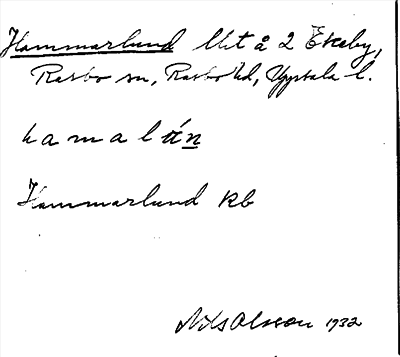 Hammarlund lht å 2 Ekeby,
Rasbo sn, Rasbo hd, Uppsala l.
hamalún
Hammarlund kb
Nils Olsson 1932